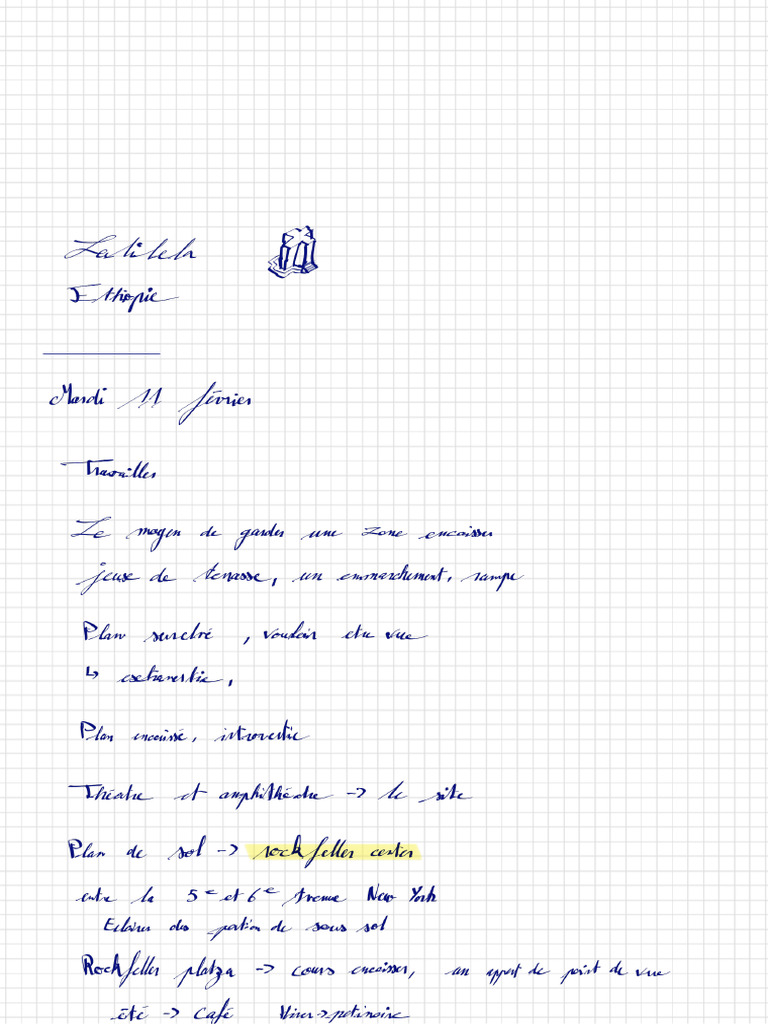 Lalibela
Ethiopie
Mardi 11 février
Travailler
Le moyen de garder une zone encaisser
jeux de terrasse, un emmarchement, rampe
Plan surelvé , vouloir etre vue
↳ extravertie,
Plan encaissé, introvertie
Théatre et amphithéatre -> le site
Plan de sol -> rockfeller center
entre la 5e et 6e Avenue New York
Eclairer des portion de sous sol
Rockfeller platza -> cours encaisser, un apport de point de vue
été -> café Hiver -> patinoire